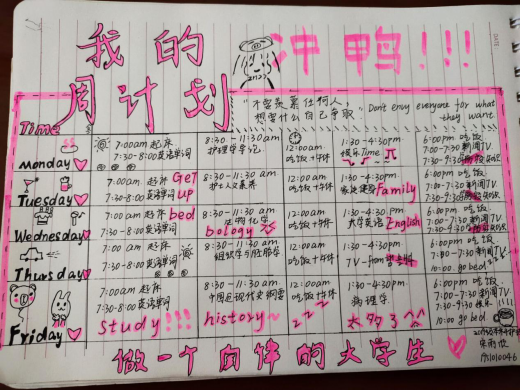 我的 冲鸭!!!
周计划
"不要羡慕任何人,
想要什么自己争取"
Don't envy everyone for what
they want.
Time
Monday
7:00am 起床
7:30-8:00英语单词
8:30-11:30am
护理学导论
12:00am
吃饭+午休
1:30-4:30pm
娱乐Time
6:00pm 吃饭
7:00-7:30新闻TV
Tuesday
7:00am 起床 Get
7:30-8:00英语单词 up
8:30-11:30am
护士人文素养
12:00am
吃饭+午休
1:30-4:30pm
Family
6:00pm 吃饭
7:00-7:30新闻TV
Wednesday
7:00am 起床 bed
7:30-8:00英语单词
8:30-11:30am
生物化学
bology
12:00am
吃饭+午休
1:30-4:30pm
大学英语 English
6:00pm 吃饭
7:00-7:30新闻TV
Thursday
7:00 am 起床
7:30-8:00英语单词
8:30-11:30am
组织学与胚胎学
12:00am
吃饭+午休
1:30-4:30pm
6:00pm 吃饭
7:00-7:30新闻TV
10:00 go bed
Friday
7:00am 起床
7:30-8:00英语单词
Study!!!
8:30-11:30am
中国近现代史纲要
history~
12:00am
吃饭+午休
zzz
1:30-4:30pm
病理学
太多了^^
6:00pm 吃饭
7:00-7:30新闻TV
10:00 go bed
做一个自律的大学生